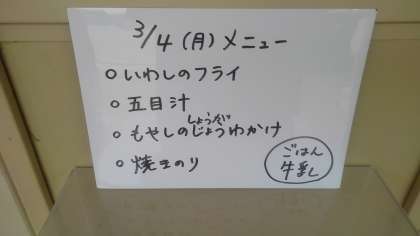 3/4 (月) メニュー
○ いわしのフライ
○ 五目汁
しょうゆ
○ もやしのじょうわかけ
○ 焼きのり
ごはん
牛乳